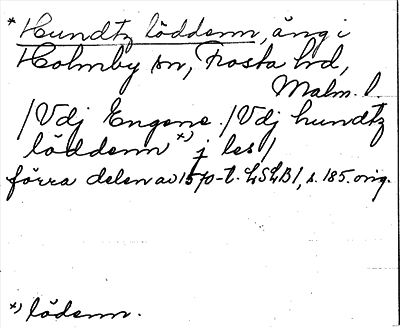 * Hundtz löddenn, äng i
Holmby sn, Frosta hd,
Malm. l.
/Vdj Engene. /Vdj hundtz
löddenn *) j les/
förra delen av 1570-t. LSLB1, s. 185. orig.
*) lödenn.